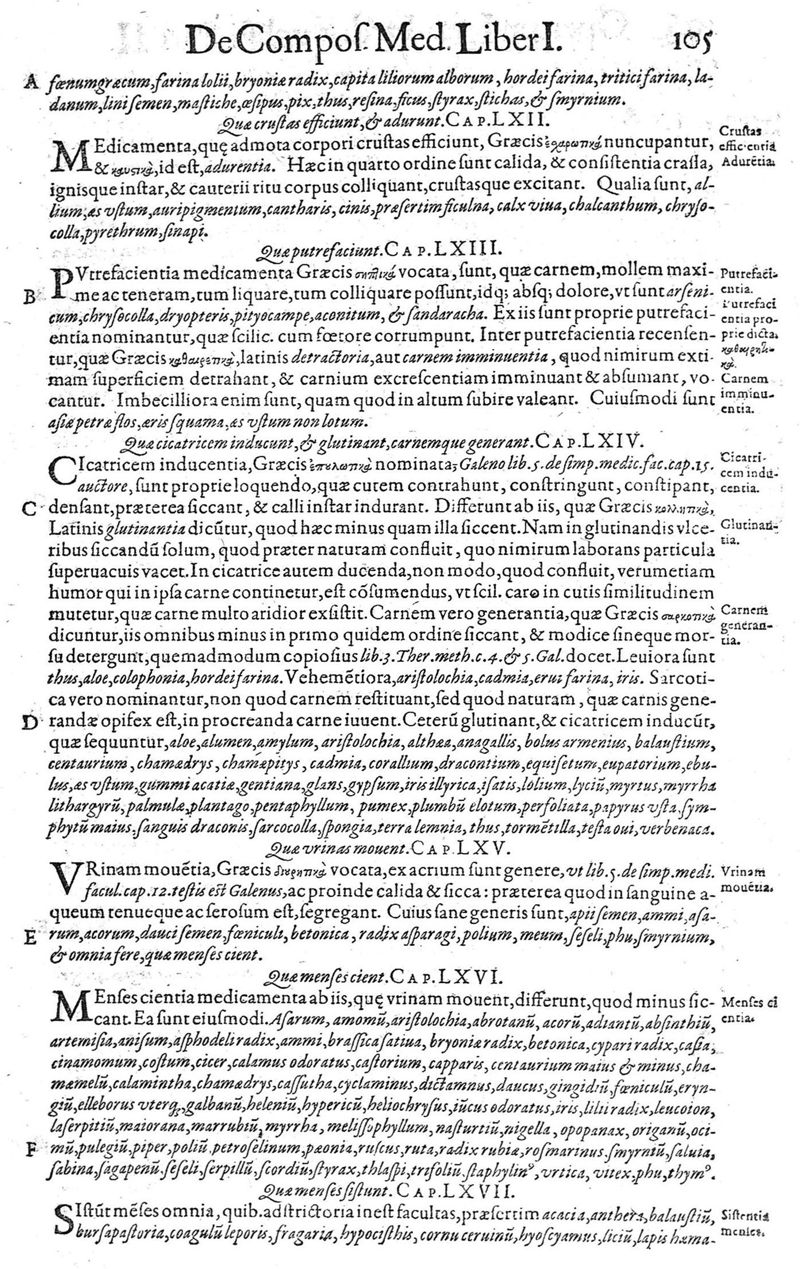 De Compos. Med. Liber I. 105
A fœnumgræcum, farina lolii, bryoniæ radix, capita liliorum alborum, hordei farina, tritici farina, la-
danum, lini semen, mastiche, œsipus, pix, thus, resina, ficus, styrax, stichas, & smyrnium.
Quæ crustas efficiunt, & adurunt. CAP. LXII.
MEdicamenta, quę admota corpori crustas efficiunt, Græcis ἐσχαρωτικὰ nuncupantur,
& καυστικὰ, id est, adurentia. Hæc in quarto ordine sunt calida, & consistentia crassa,
Crustas
efficientia
Adurẽtia.
ignisque instar, & cauterii ritu corpus colliquant, crustasque excitant. Qualia sunt, al-
lium, æs vstum, auripigmentum, cantharis, cinis, præsertim ficulna, calx viua, chalcanthum, chryso-
colla, pyrethrum, sinapi.
Quæ putrefaciunt. CAP. LXIII.
PVtrefacientia medicamenta Græcis σηπτικὰ vocata, sunt, quæ carnem, mollem maxi-
B me ac teneram, tum liquare, tum colliquare possunt, idq; absq; dolore, vt sunt arseni-
cum, chrysocolla, dryopteris, pityocampe, aconitum, & sandaracha. Ex iis sunt proprie putrefaci-
entia nominantur, quæ scilic. cum fœtore corrumpunt. Inter putrefacientia recensen-
tur, quæ Græcis καθαιρετικὰ, latinis detractoria, aut carnem imminuentia, quod nimirum exti-
mam superficiem detrahant, & carnium excrescentiam imminuant & absumant, vo-
cantur. Imbecilliora enim sunt, quam quod in altum subire valeant. Cuiusmodi sunt
Putrefaci-
entia.
Putrefaci
entia pro-
prie dicta.
καθαιρετι-
κὰ.
Carnem
imminu-
entia.
asiæ petræ flos, æris squama, æs vstum non lotum.
Quæ cicatricem inducunt, & glutinant, carnemque generant. CAP. LXIV.
CIcatricem inducentia, Græcis ἐπουλωτικὰ nominata, Galeno lib. 5. de simp. medic. fac. cap. 15.
auctore, sunt proprie loquendo, quæ cutem contrahunt, constringunt, constipant,
Cicatri-
cem indu-
centia.
C densant, præterea siccant, & calli instar indurant. Differunt ab iis, quæ Græcis κολλητικὰ,
Latinis glutinantia dicũtur, quod hæc minus quam illa siccent. Nam in glutinandis vlce-
ribus siccandũ solum, quod præter naturam confluit, quo nimirum laborans particula
Glutinan-
tia.
superuacuis vacet. In cicatrice autem ducenda, non modo, quod confluit, verumetiam
humor qui in ipsa carne continetur, est cõsumendus, vt scil. caro in cutis similitudinem
mutetur, quæ carne multo aridior exsistit. Carnem vero generantia, quæ Græcis σαρκωτικὰ
dicuntur, iis omnibus minus in primo quidem ordine siccant, & modice sineque mor-
su detergunt, quemadmodum copiosius lib. 3. Ther. meth. c. 4. & 5. Gal. docet. Leuiora sunt
Carnem
generan-
tia.
thus, aloe, colophonia, hordei farina. Vehemẽtiora, aristolochia, cadmia, erui farina, iris. Sarcoti-
ca vero nominantur, non quod carnem restituant, sed quod naturam, quæ carnis gene-
D randæ opifex est, in procreanda carne iuuent. Ceterũ glutinant, & cicatricem inducũt,
quæ sequuntur, aloe, alumen, amylum, aristolochia, althæa, anagallis, bolus armenius, balaustium,
centaurium, chamædrys, chamæpitys, cadmia, corallium, dracontium, equisetum, eupatorium, ebu-
lus, æs vstum, gummi acatiæ, gentiana, glans, gypsum, iris illyrica, isatis, lolium, lyciũ, myrtus, myrrha
lithargyrũ, palmulæ, plantago, pentaphyllum, pumex, plumbũ elotum, perfoliata, papyrus vsta, sym-
phytũ maius, sanguis draconis, sarcocolla, spongia, terra lemnia, thus, tormẽtilla, testa oui, verbenaca.
Quæ vrinas mouent. CAP. LXV.
VRinam mouẽtia, Græcis διουρητικὰ vocata, ex acrium sunt genere, vt lib. 5. de simp. medi.
facul. cap. 12. testis est Galenus, ac proinde calida & sicca: præterea quod in sanguine a-
Vrinam
mouẽtia.
queum tenueque ac serosum est, segregant. Cuius sane generis sunt, apii semen, ammi, asa-
E rum, acorum, dauci semen, fœniculi, betonica, radix asparagi, polium, meum, seseli, phu, smyrnium,
& omnia fere, quæ menses cient.
Quæ menses cient. CAP. LXVI.
MEnses cientia medicamenta ab iis, quę vrinam mouent, differunt, quod minus sic-
cant. Ea sunt eiusmodi. Asarum, amomũ, aristolochia, abrotanũ, acorũ, adiantũ, absinthiũ,
Menses ci
entia.
artemisia, anisum, asphodeli radix, ammi, brassica satiua, bryoniæ radix, betonica, cypari radix, casia,
cinamomum, costum, cicer, calamus odoratus, castorium, capparis, centaurium maius & minus, cha-
mæmelũ, calamintha, chamædrys, cassutha, cyclaminus, dictamnus, daucus, gingidiũ, fœniculũ, eryn-
giũ, elleborus vterq;, galbanũ, heleniũ, hypericũ, heliochrysus, iũcus odoratus, iris, lilii radix, leucoion,
laserpitiũ, maiorana, marrubiũ, myrrha, melissophyllum, nasturtiũ, nigella, opopanax, origanũ, oci-
F mũ, pulegiũ, piper, poliũ, petroselinum, pæonia, ruscus, ruta, radix rubiæ, rosmarinus, smyrniũ, saluia,
sabina, sagapenũ, seseli, serpillũ, scordiũ, styrax, thlaspi, trifoliũ, staphylinꝰ, vrtica, vitex, phu, thymꝰ.
Quæ menses sistunt. CAP. LXVII.
SIstũt mẽses omnia, quib. adstrictoria inest facultas, præsertim acacia, anthera, balaustiũ,
bursa pastoria, coagulũ leporis, fragaria, hypocisthis, cornu ceruinũ, hyoscyamus, liciũ, lapis hæma-
Sistentia
menses.